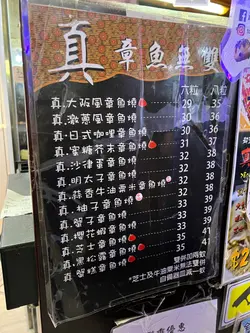 真 章魚無雙
六粒 八粒
真.大阪風章魚燒 29 35
真.激蔥風章魚燒 30 36
真.日式咖哩章魚燒 30 36
真.蜜糖芥末章魚燒 31 37
真.沙律軍章魚燒 31 37
真.明太子章魚燒 32 38
真.蒜香牛油粟米章魚燒 32 38
真.柚子章魚燒 32 38
真.蟹子章魚燒 33 39
真.櫻花蝦章魚燒 33 39
真.芝士章魚燒 35 41
真.黑松露章魚燒 35 41
真.蟹糕章魚燒
雙併加兩蚊
*芝士及牛油粟米無法雙併
自備器皿減一蚊
優惠